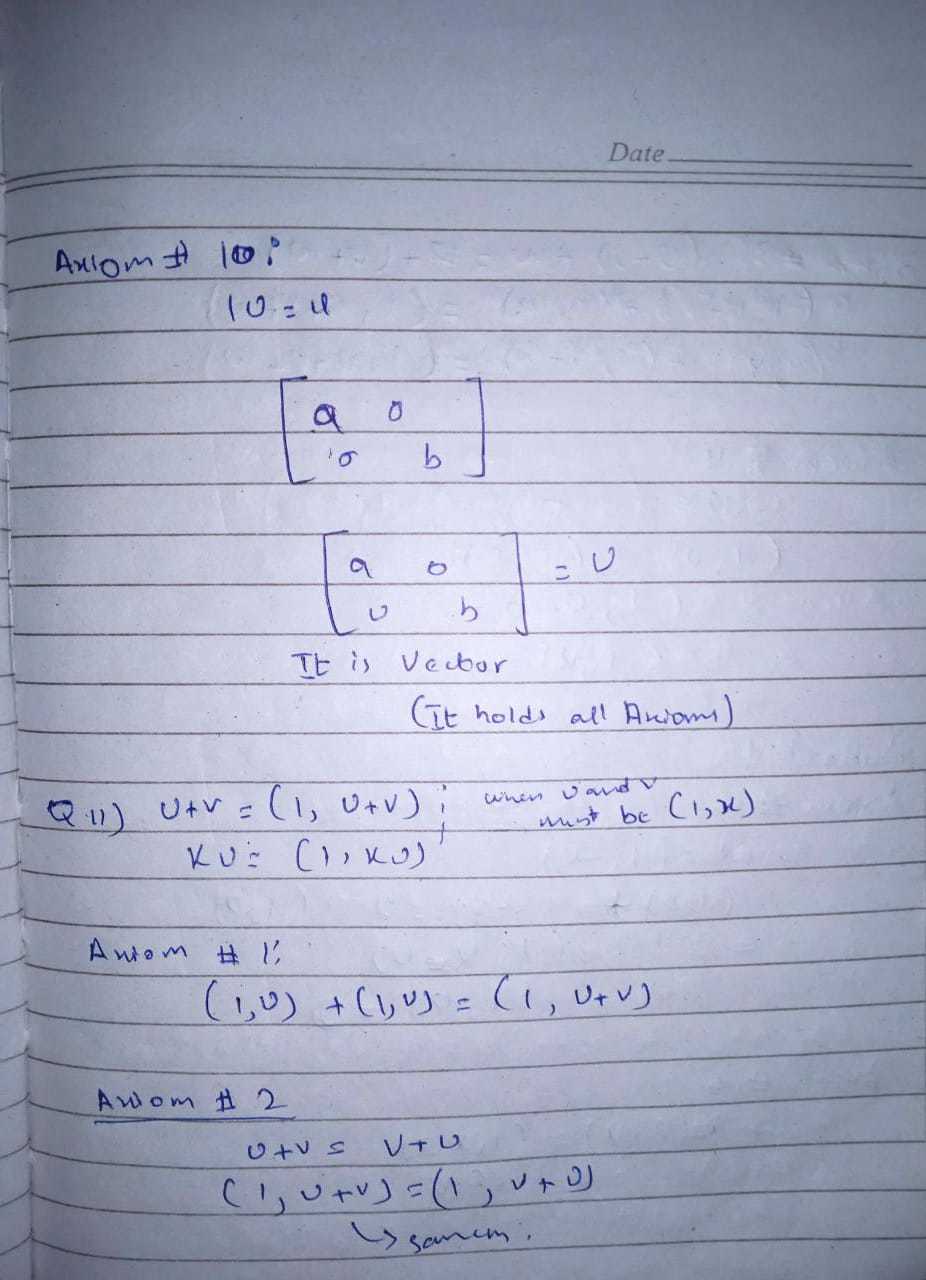 Date
Axiom # 10:
1U = U
[ a 0
0 b ]
[ a 0
0 b ] = U
It is Vector
(It holds all Axioms)
Q.11) U+V = (1, U+V) ; when U and V must be (1,x)
KU = (1, KU)
Axiom # 1:
(1,U) + (1,V) = (1, U+V)
Axiom # 2
U+V = V+U
(1, U+V) = (1, V+U)